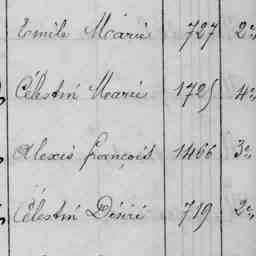 Emile Marie 727 2e
Célestin Marie 1725 4e
Alexis françois 1466 3e
Célestin Désiré 719 2e